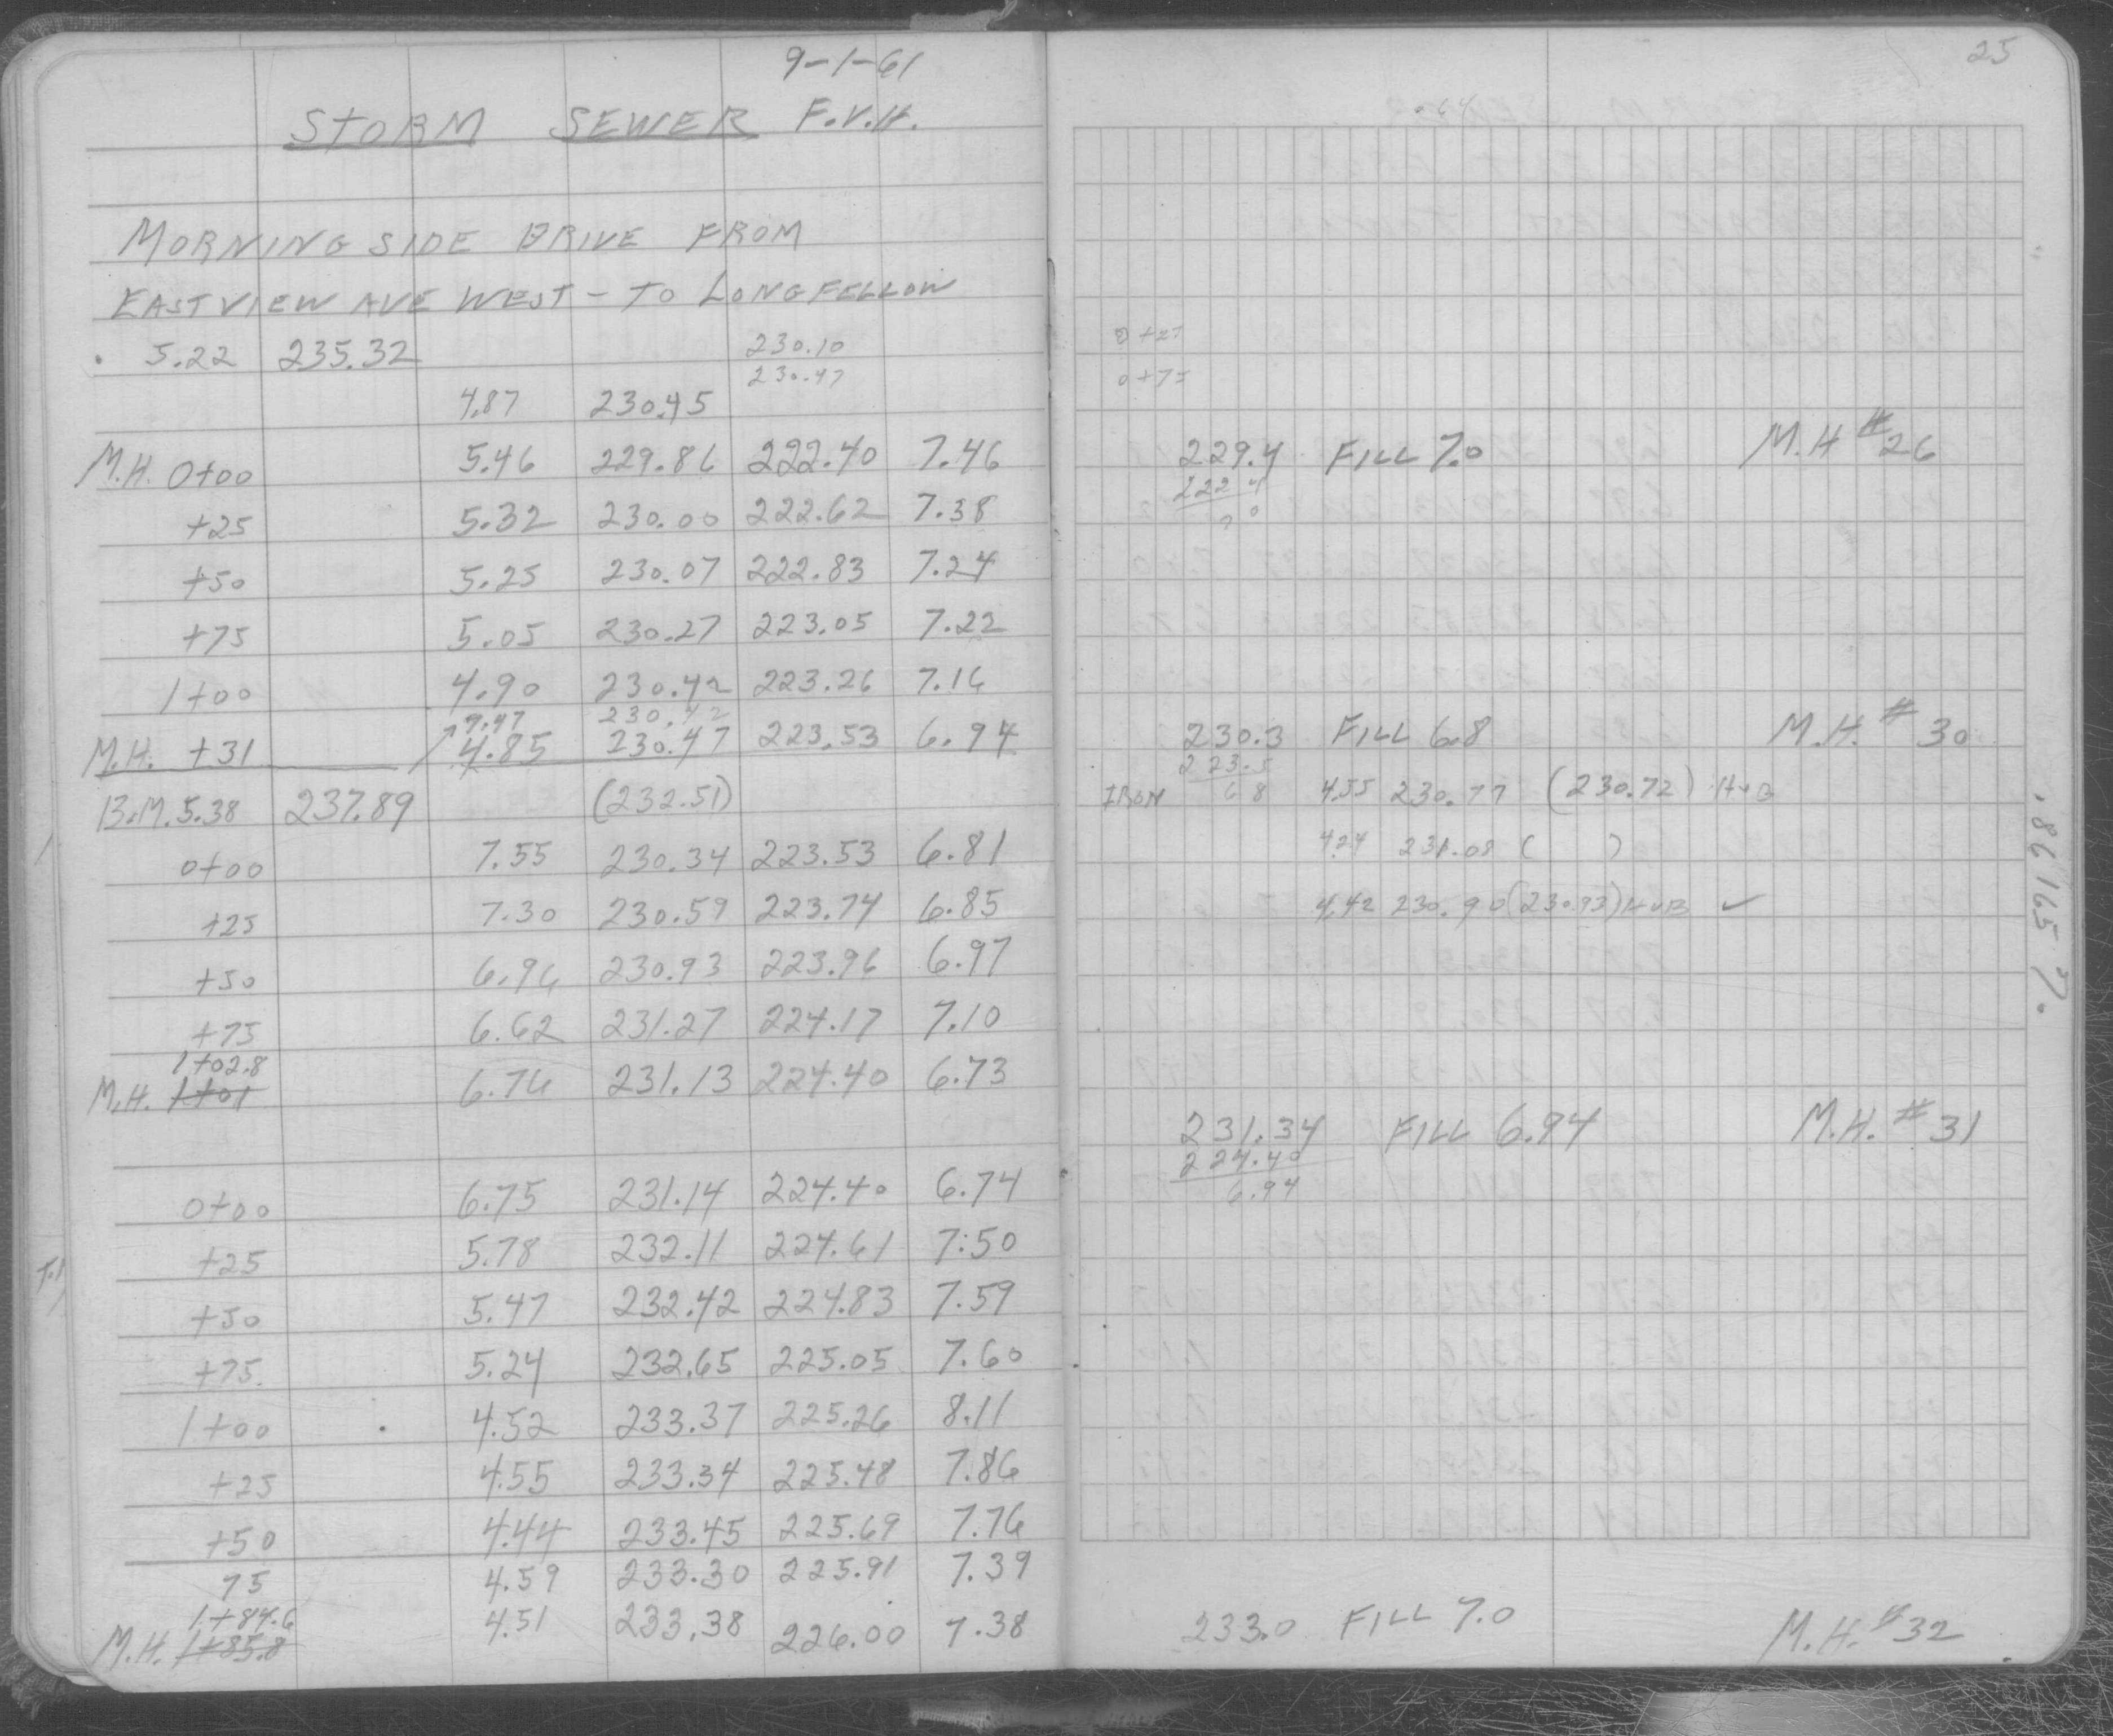 9-1-61
STORM SEWER F.V.H.
MORNINGSIDE DRIVE FROM
EASTVIEW AVE WEST - TO LONGFELLOW
5.22 235.32 230.10
230.47
4.87 230.45
M.H. 0+00 5.46 229.86 222.40 7.46
+25 5.32 230.00 222.62 7.38
+50 5.25 230.07 222.83 7.24
+75 5.05 230.27 223.05 7.22
1+00 4.90 230.42 223.26 7.16
9.47 230.42
M.H. +31 4.85 230.47 223.53 6.94
B.M. 5.38 237.89 (232.51)
0+00 7.55 230.34 223.53 6.81
+25 7.30 230.59 223.74 6.85
+50 6.96 230.93 223.96 6.97
+75 6.62 231.27 224.17 7.10
1+02.8
M.H. 1+01 6.76 231.13 224.40 6.73
0+00 6.75 231.14 224.40 6.74
+25 5.78 232.11 224.61 7.50
+50 5.47 232.42 224.83 7.59
+75 5.24 232.65 225.05 7.60
1+00 4.52 233.37 225.26 8.11
+25 4.55 233.34 225.48 7.86
+50 4.44 233.45 225.69 7.76
75 4.59 233.30 225.91 7.39
1+84.6
M.H. 1+85.8 4.51 233.38 226.00 7.38
25
.64
0+75
229.4 FILL 7.0 M.H #26
222 4
7 0
230.3 FILL 6.8 M.H. # 30
223.5
6 8
IRON 4.55 230.77 (230.72) HUB
4.24 231.08 ( )
4.42 230.90 (230.93) HUB ✓
231.34 FILL 6.94 M.H. # 31
224.40
6.94
233.0 FILL 7.0 M.H. #32
.86165 7.